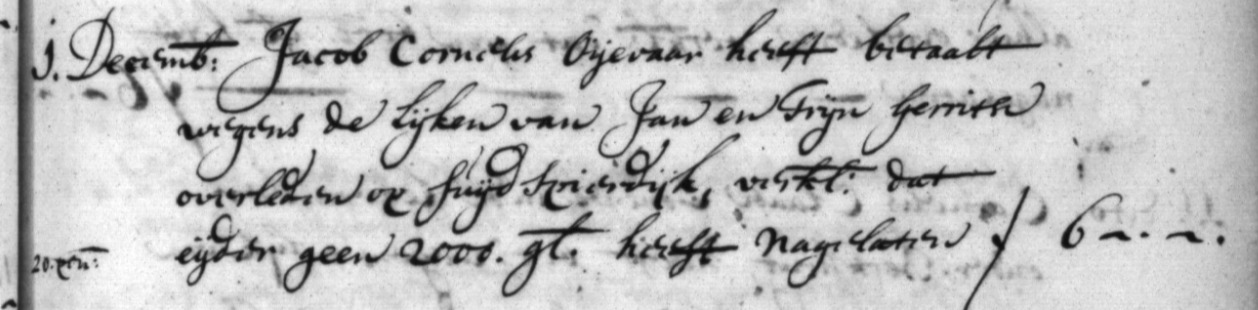 1. Decemb: Jacob Cornelis Oijevaar heeft betaalt
wegens de Lijken van Jan en Trijn Gerrits
overleden op Suijd Spierdijk, verkl: dat
eijder geen 2000. gl. heeft nagelaten / 6 ~. ~.
20. pen: